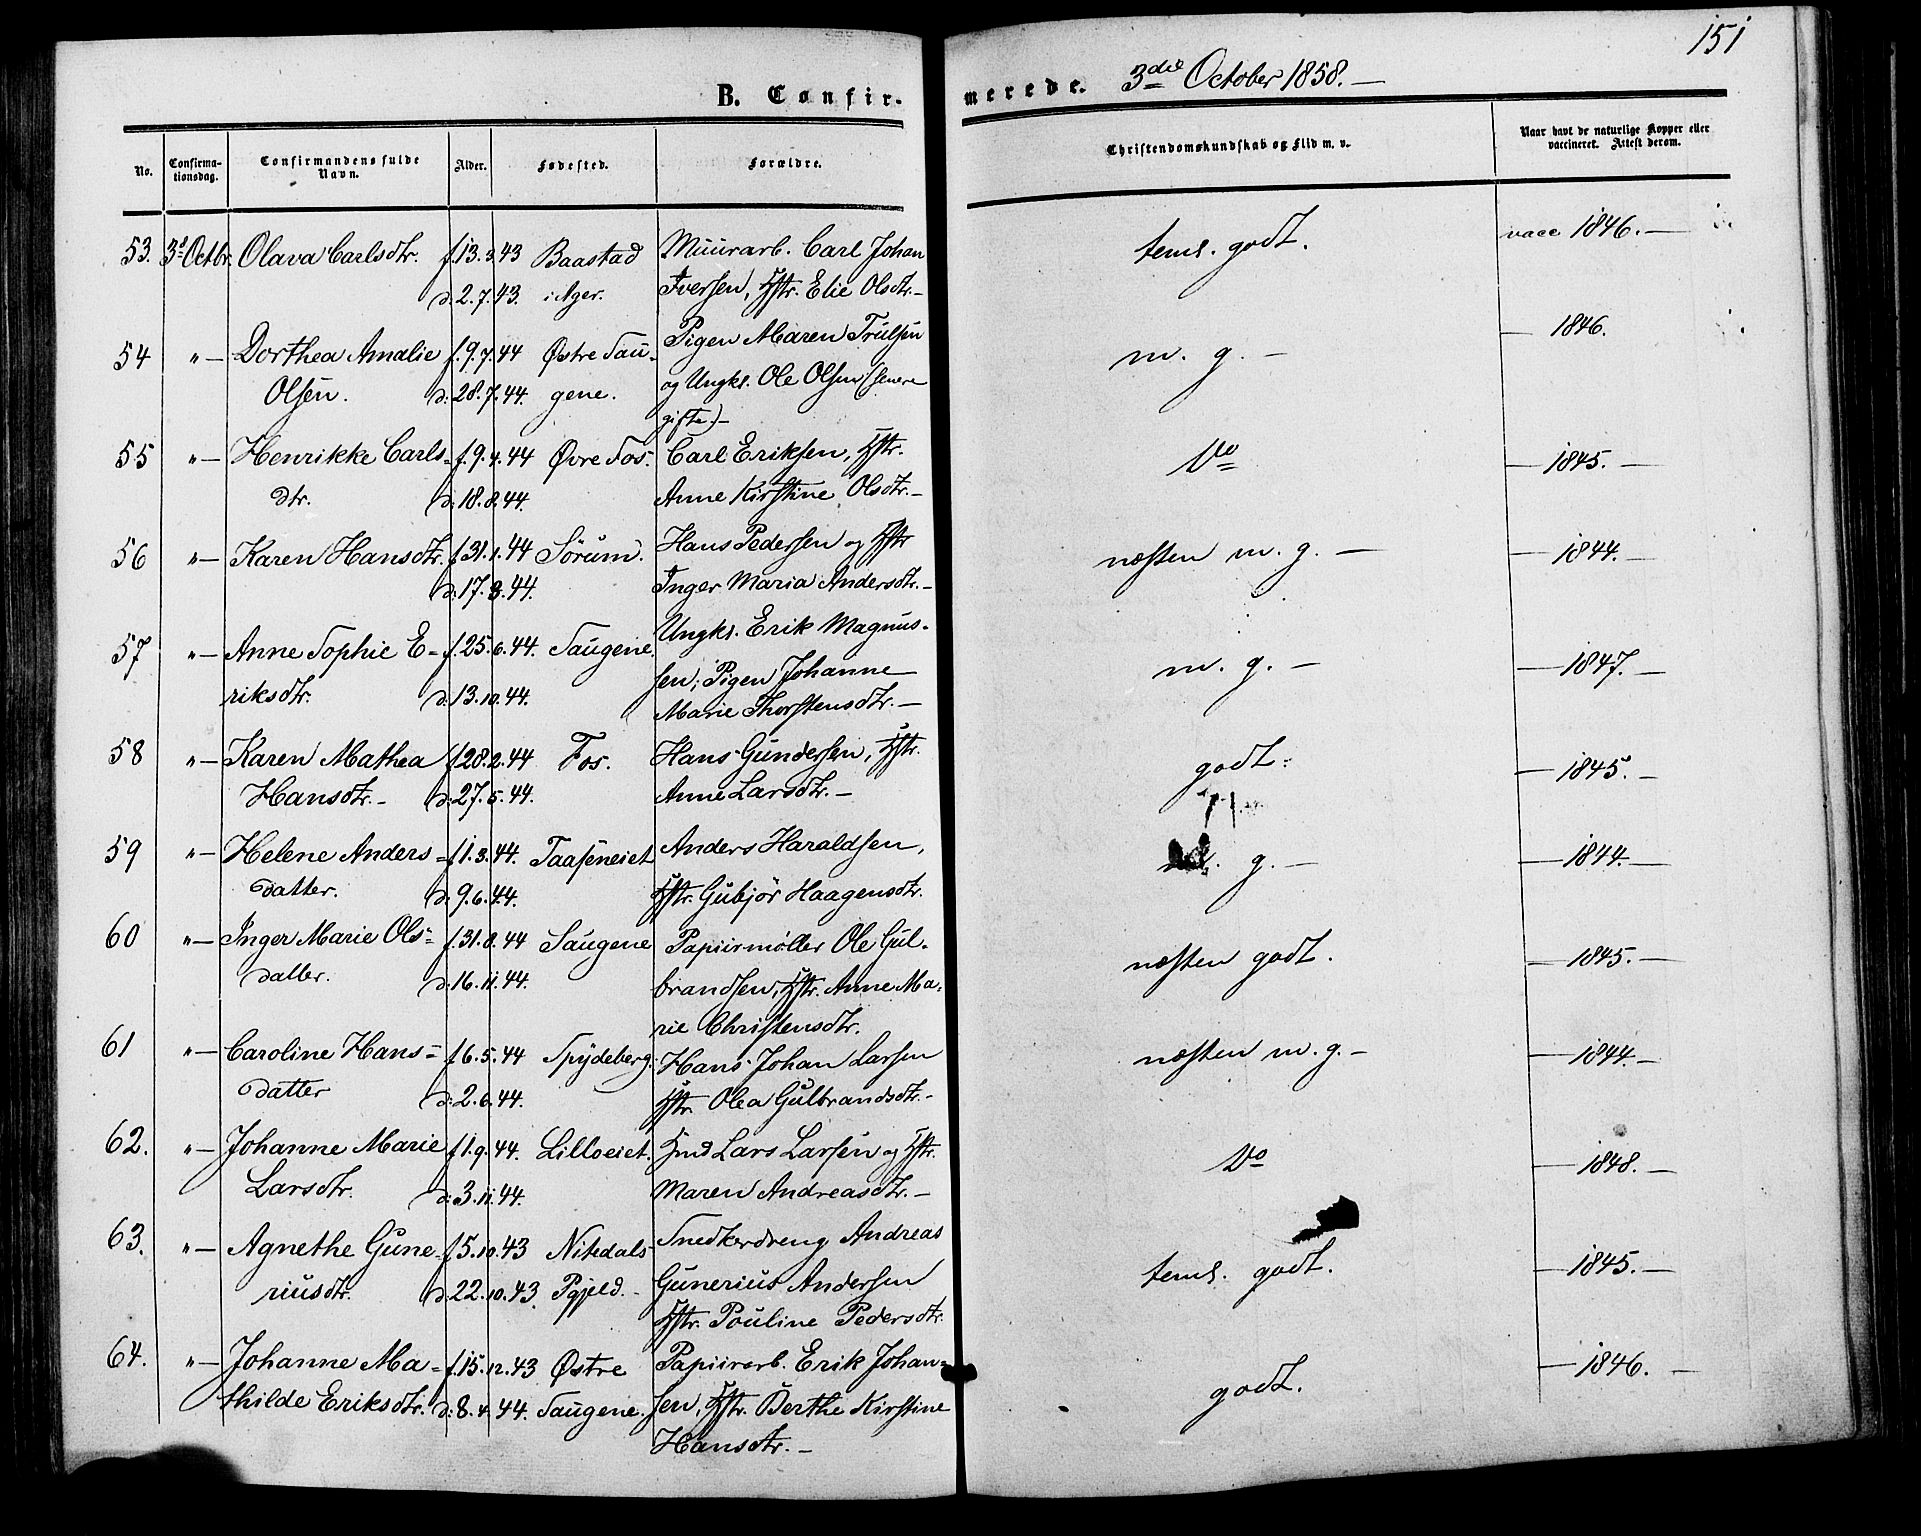 151
B. Confirmerede. 3die October 1858.—
No. Confirmationsdag. Confirmandens fulde Navn. Alder. Fødested. Forældre. Christendomskundskab og Flid m. v. Naar havt de naturlige Kopper eller vaccineret. Attest derom.
53. 3d Octbr. Olava Carlsdtr. f. 13.3.43 Baastad Muurarb. Carl Johan teml. godt. vacc 1846.—
d. 2.7.43. i Ager. Iversen, Hstr. Elie Olsdtr.—
54 "— Dorthea Amalie f. 9.7.44 Østre Sau- Pigen Maren Trulsen m. g. — — 1846.
Olsen. d. 28.7.44. gene. og Ungk. Ole Olsen (senere
gifte)—
55 "— Henrikke Carls- f. 9.4.44 Øvre Fos. Carl Eriksen, Hstr. Do — 1845.—
dtr. d. 18.8.44. Anne Kirstine Olsdtr.—
56 "— Karen Hansdtr. f. 31.1.44 Sörum. Hans Pedersen og Hstr næsten m. g. — — 1844.—
d. 17.3.44. Inger Maria Andersdtr.—
57 "— Anne Sophie E- f. 25.6.44. Saugene. Ungk. Erik Magnus- m. g. — — 1847.—
riksdtr. d. 13.10.44. sen; Pigen Johanne
Marie Thorstensdtr.—
58 "— Karen Mathea f. 28.2.44 Fos. Hans Gundersen, Hstr. godt. — 1845.—
Hansdtr.— d. 27.5.44. Anne Larsdtr.—
59 "— Helene Anders- f. 1.3.44. Taaseneiet Anders Haraldsen, g. — — 1844.—
datter. d. 9.6.44. Hstr. Gubjör Haagensdtr.
60 "— Inger Marie Ols- f. 31.8.44 Saugene Papiirmøller Ole Gul- næsten godt. — 1845.—
datter. d. 16.11.44. brandsen, Hstr. Anne Ma-
rie Christensdtr.
61 "— Caroline Hans- f. 6.5.44 Spydeberg. Hans Johan Larsen næsten m. g. — — 1844.—
datter d. 2.6.44. Hstr. Olea Gulbrandsdtr.—
62. "— Johanne Marie f. 1.9.44. Lilloeiet. Hmd Lars Larsen og Hstr. Do — 1848.—
Larsdtr. d. 3.11.44. Maren Andreasdtr.—
63. "— Agnethe Gune- f. 5.10.43 Nitedals Snedkerdreng Andreas teml. godt. — 1845.—
riusdtr. d. 22.10.43. Pgjeld.— Gunerius Andersen
Hstr. Pouline Pedersdtr.
64. "— Johanne Ma- f. 15.12.43 Østre Papiirarb. Erik Johan- godt. — 1846.—
thilde Eriksdtr. d. 8.4.44. Saugene. sen, Hstr. Berthe Kirstine
Hansdtr.—